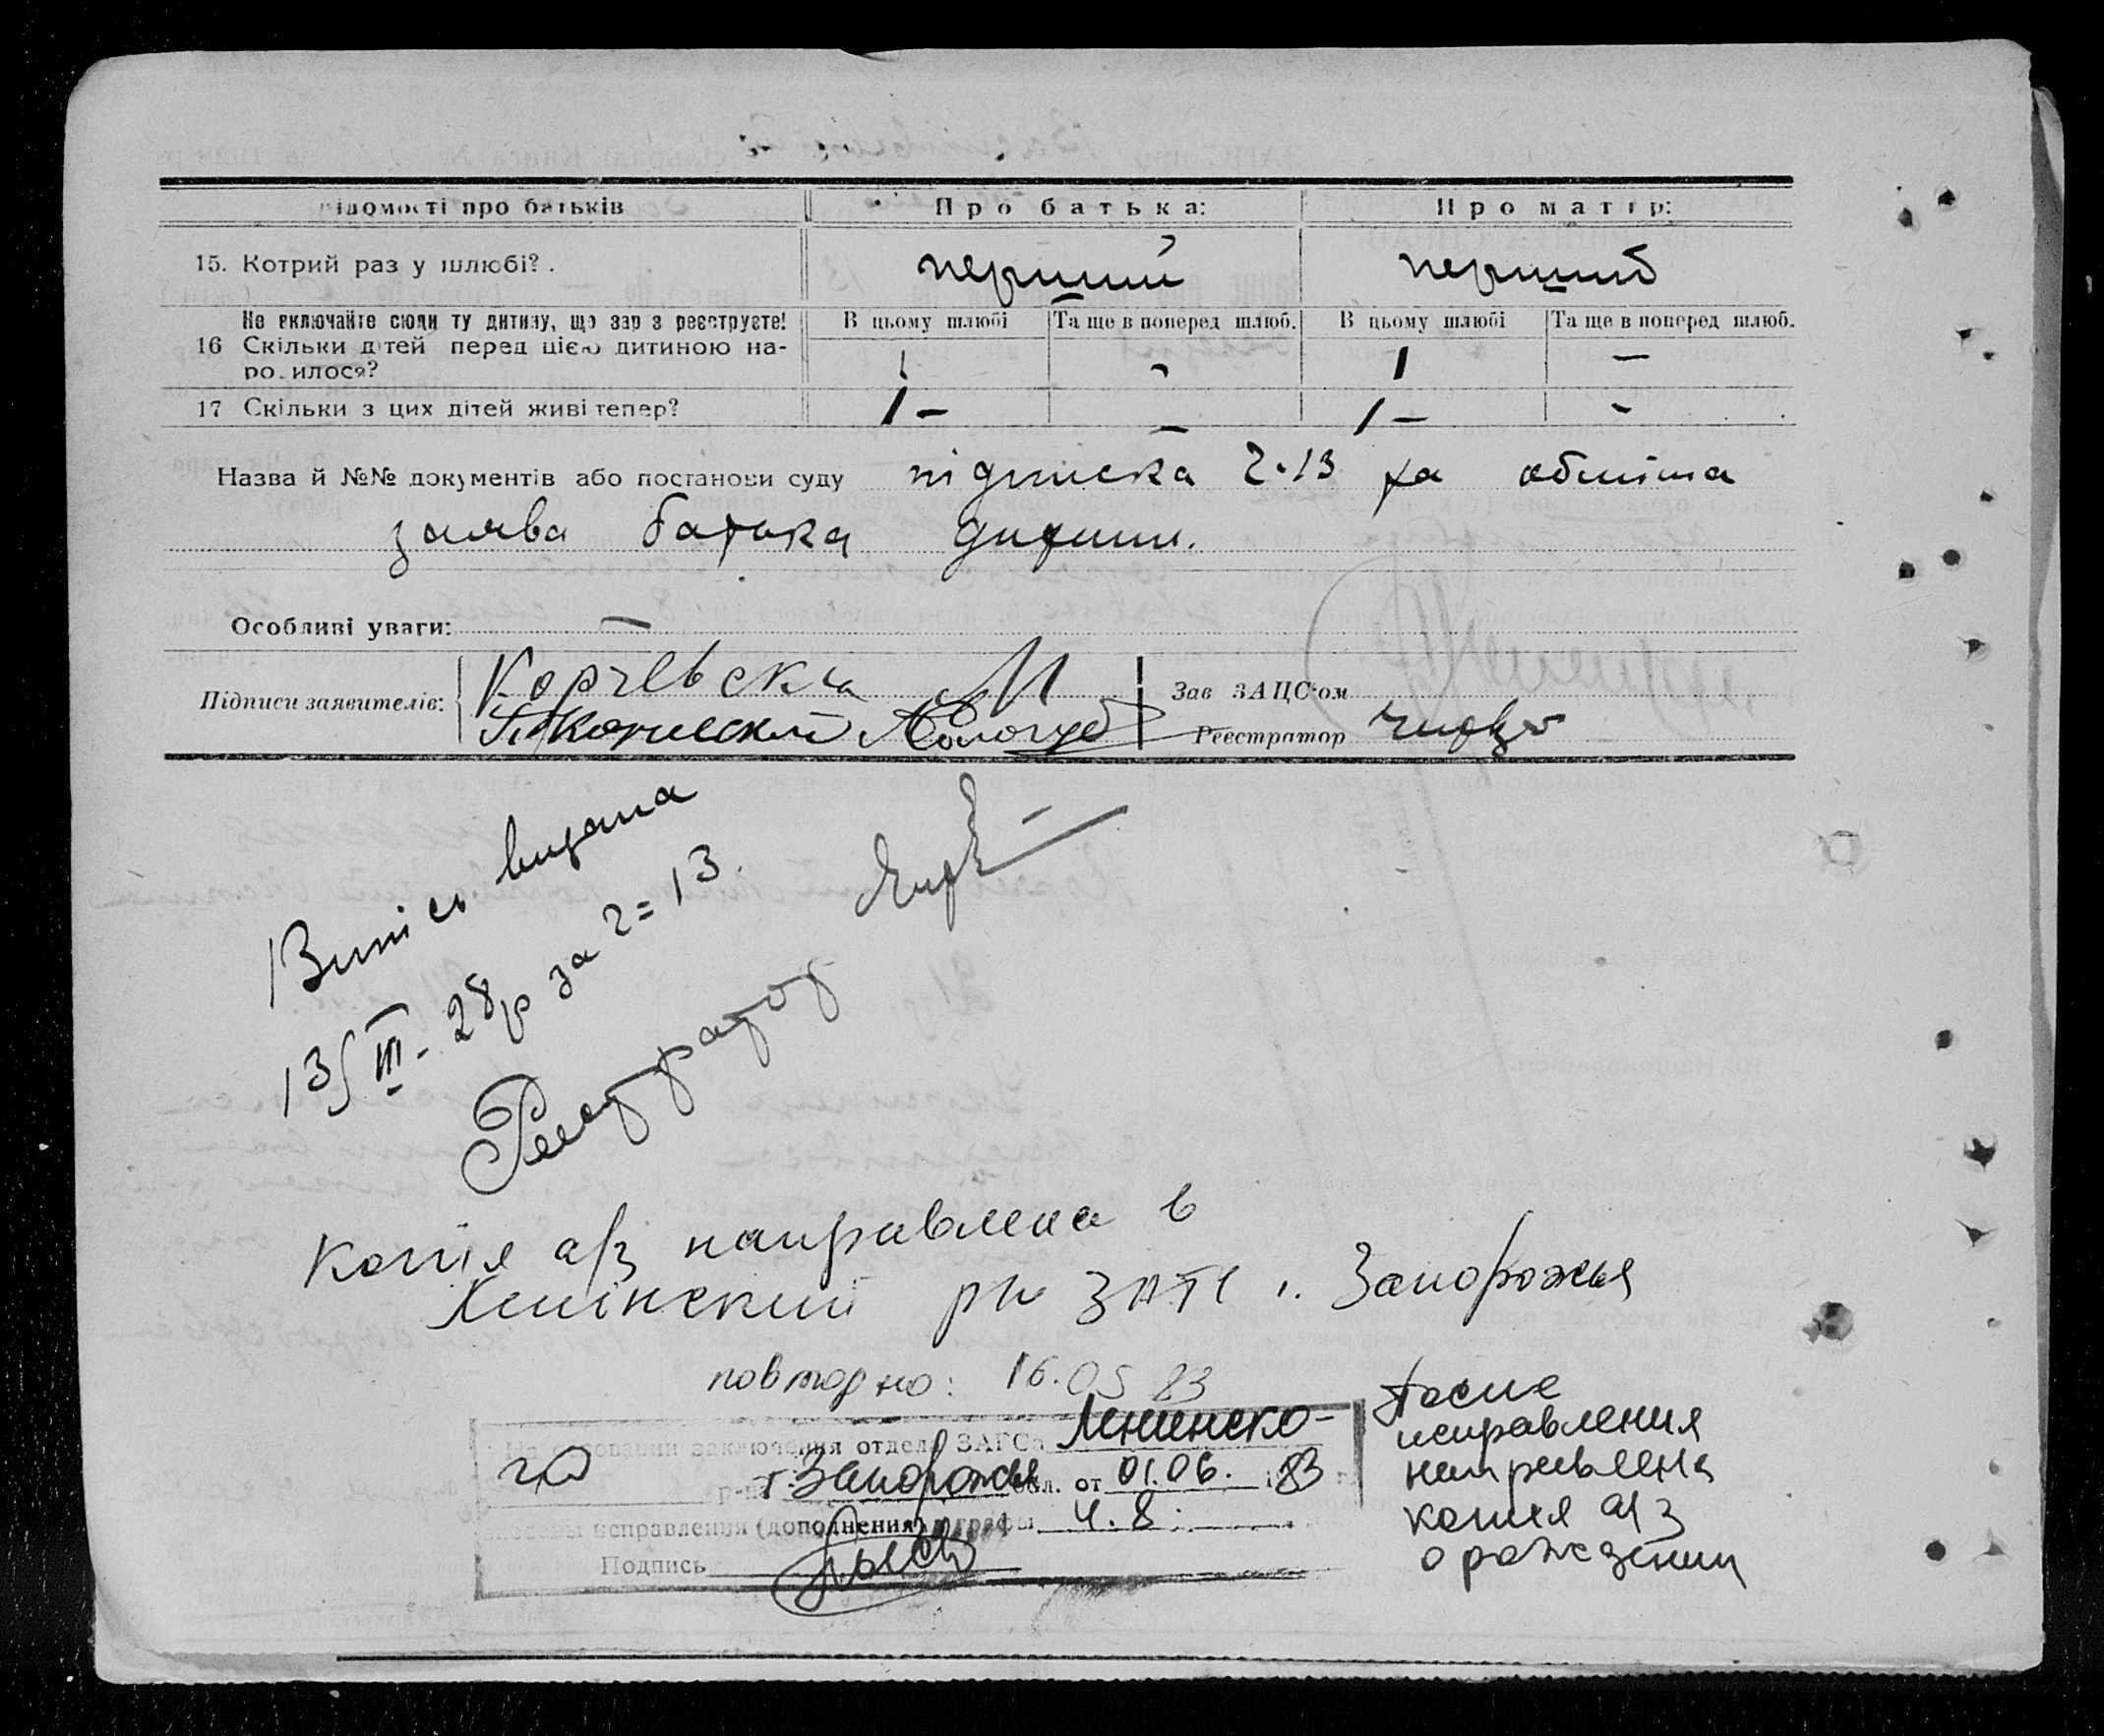 відомості про батьків Про батька: Про матір:
15. Котрий раз у шлюбі? перший перший
Не включайте сюди ту дитину, що зараз реєструєте! В цьому шлюбі Та ще в поперед шлюб. В цьому шлюбі Та ще в поперед шлюб.
16 Скільки дітей перед цією дитиною на-
родилося? 1 - 1 —
17 Скільки з цих дітей живі тепер? 1 — — 1 — -
Назва й №№ документів або постанови суду підписка 2·13 та
заява батька дитини.
Особливі уваги: —
Підписи заявителів: Корчевська М
Зав ЗАЦС'ом
Реєстратор
Випись видана
13/III - 28р за 2=13.
Реєстратор
Копія а/з направлена в
Ленінский рн ЗАГС г. Запорожья
повторно: 16.05 83
На основании заключения отдела ЗАГСа Ленинско-
го р-на г. Запорожья обл. от 01.06. 1983
внесены исправления (дополнения) в графы 4.8.
Подпись
После
исправления
направлена
копия а/з
о рождении